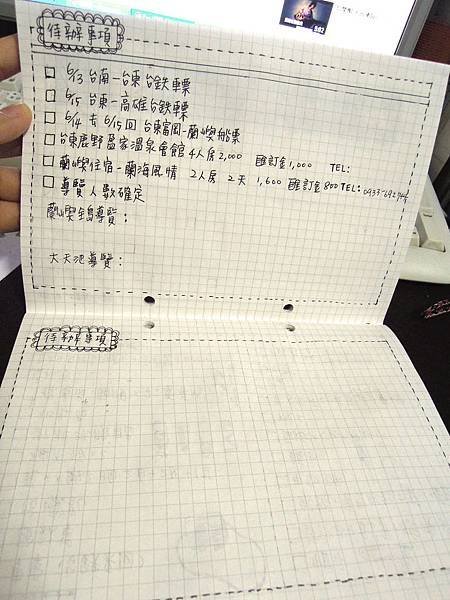 待辦事項
□ 6/13 台南-台東 台鉄車票
□ 6/15 台東-高雄台鉄車票
□ 6/14 去 6/15 回 台東富岡-蘭嶼船票
□ 台東鹿野富家溫泉會館 4人房 2,000 匯訂金 1,000 TEL:
□ 蘭嶼住宿-蘭海風情 2人房 2天 1,600 匯訂金 800 TEL:
□ 導覽人數確定
蘭嶼全島導覽:
大天池導覽:
待辦事項